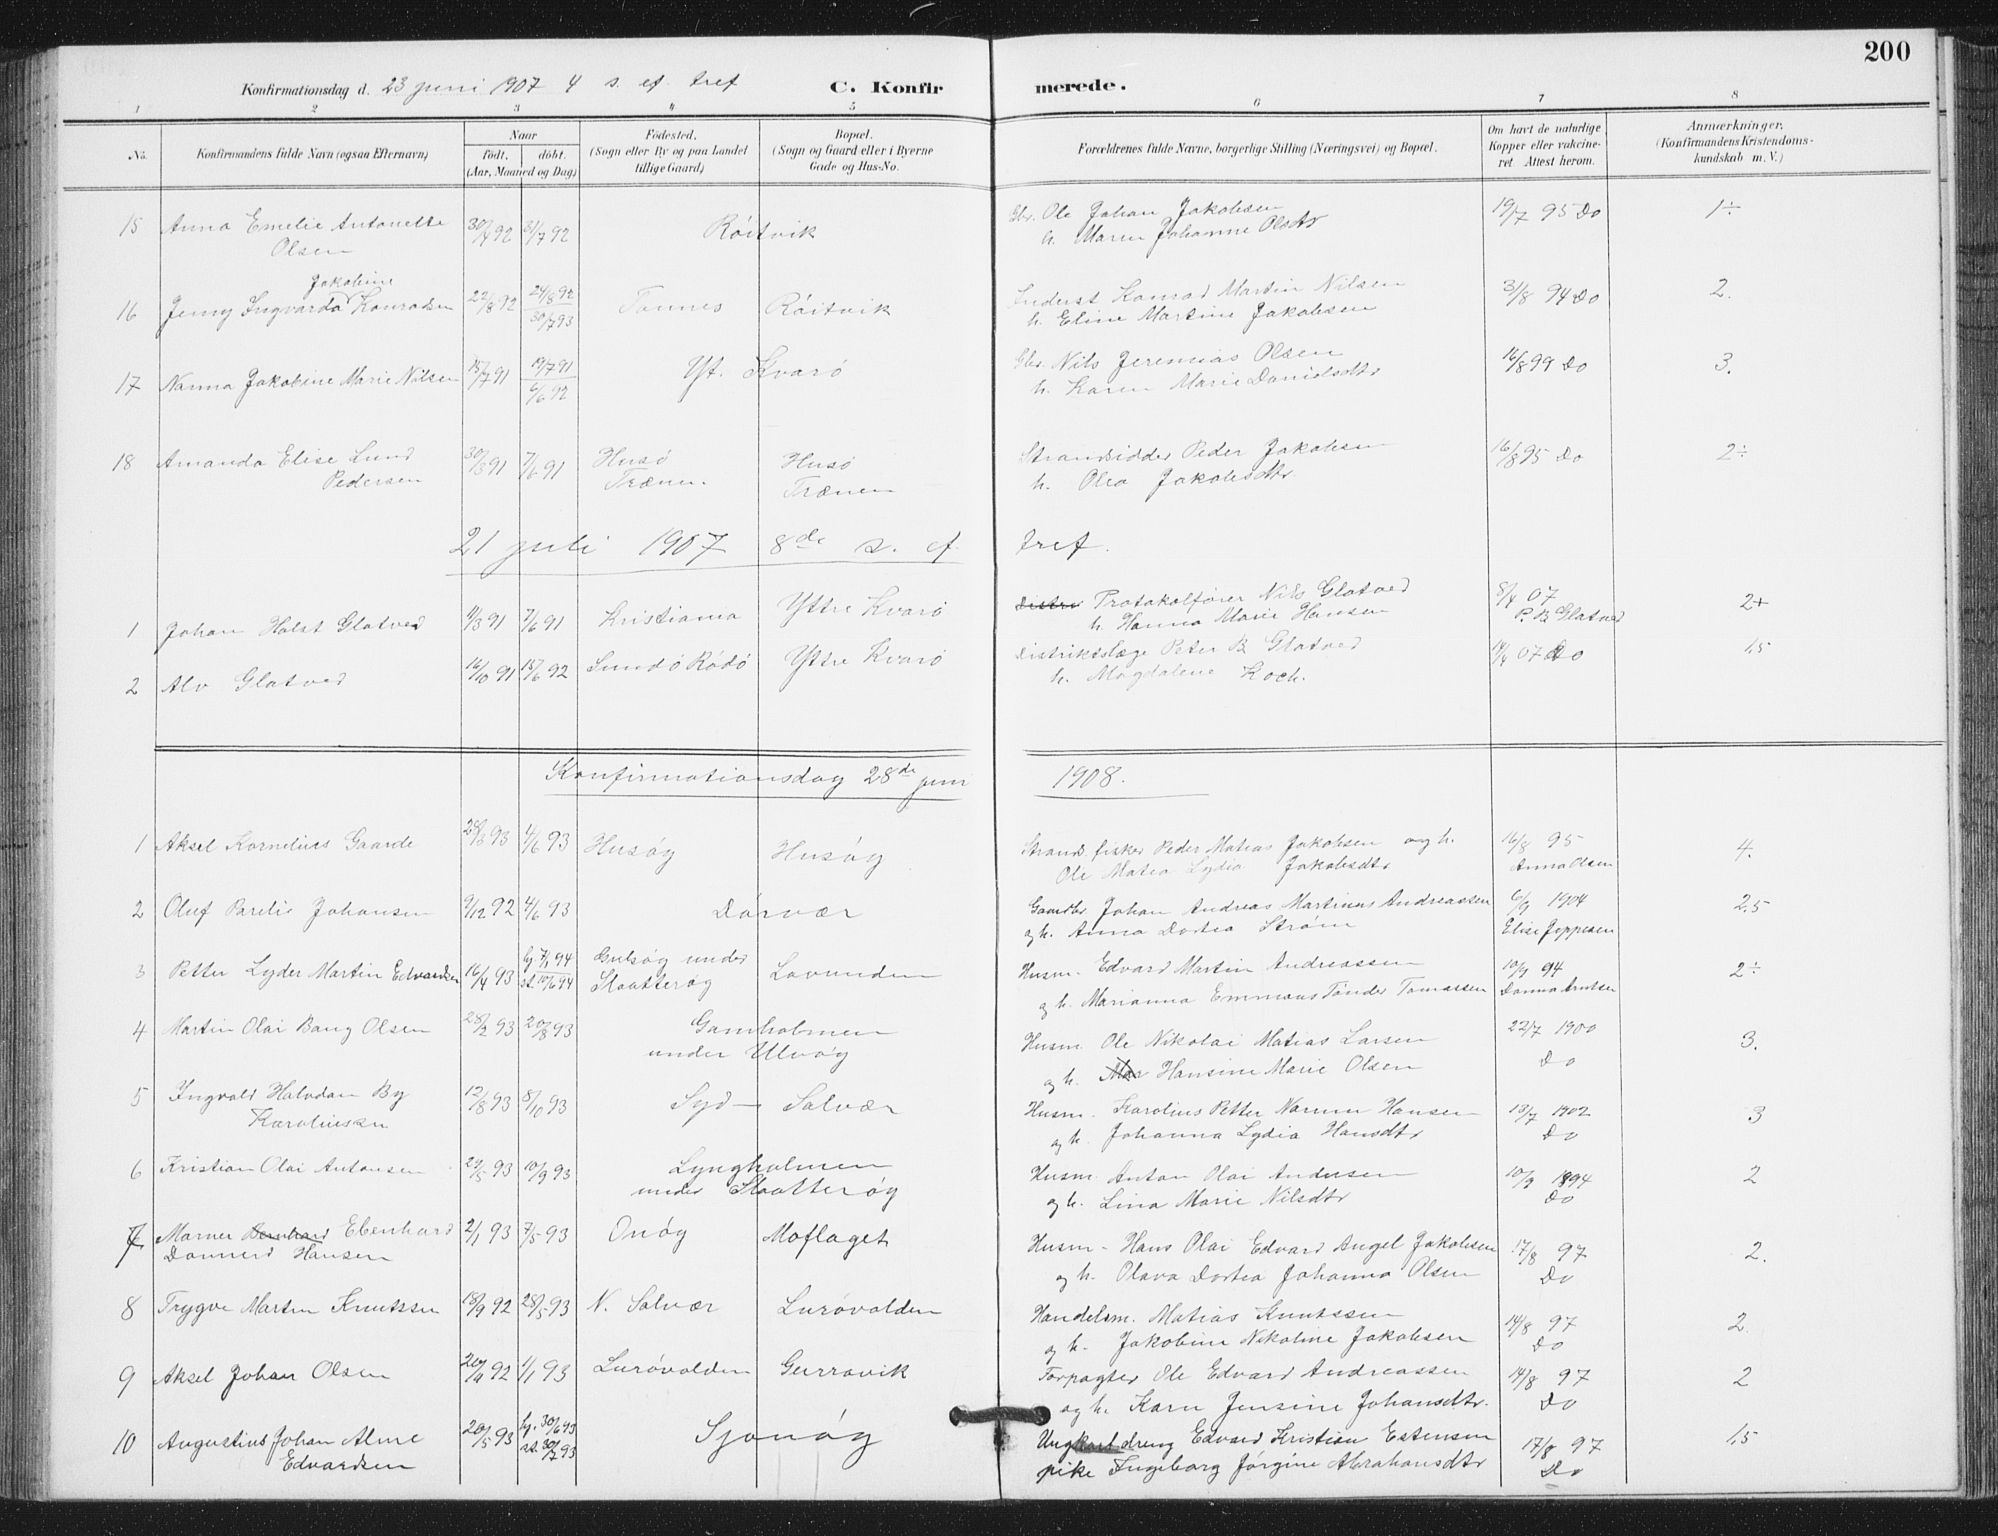 200
Konfirmationsdag d. 23 juni 1907 4 s. ef. tref C. Konfirmerede.
1 2 3 4 5 6 7 8
No. Konfirmandens fulde Navn (ogsaa Efternavn) Naar født, døbt. (Aar, Maaned og Dag) Fødested. (Sogn eller By og paa Landet tillige Gaard) Bopæl. (Sogn og Gaard eller i Byerne Gade og Hus-No. Forældrenes fulde Navne, borgerlige Stilling (Næringsvei) og Bopæl. Om havt de naturlige Kopper eller vakcineret. Attest herom. Anmærkninger. (Konfirmandens Kristendomskundskab m. V.)
15 Anna Emelie Antonette Olsen 30/4 92 31/7 92 Röitvik Gbr. Ole Johan Jakobsen h. Maren Johanne Olsdtr 19/7 95 Do 1÷
16 Jenny Ingvarda Jakobine Konradsen 22/8 92 24/8 92 30/7 93 Tonnes Röitvik Inderst Konrad Martin Nilsen h. Eline Martine Jakobsen 31/8 94 Do 2.
17 Nanna Jakobine Marie Nilsen 15/7 91 19/7 91 6/6 92 Yt. Kvarö Gbr. Nils Jeremias Olsen h. Karen Marie Danielsdtr 16/8 99 Do 3.
18 Amanda Elise Lund Pedersen 30/3 91 7/6 91 Husö Trænen. Husö Trænen Strandsidder Peder Jakobsen h. Olea Jakobsdtr 16/8 95 Do 2÷
21 juli 1907 8de s. ef. tref.
1 Johan Holst Glatved 11/3 91 7/6 91 Kristiania Yttre Kvarö Distri Protokolfører Nils Glatved h. Hanna Marie Hansen 8/4 07 P. B. Glatved 2+
2 Alv Glatved 16/10 91 15/6 92 Sundö Rödö Yttre Kvarö Distriktslæge Peter B Glatved h. Magdalene Koch. 14/4 07 Do 1.5
Konfirmationsdag 28de juni 1908.
1 Aksel Kornelius Gaarde 28/3 93 4/6 93 Husøy Husøy Strand. fisker Peder Matias Jakobsen og h. Ole Matea Lydia Jakobsdtr 16/8 95 Anna Olsen 4.
2 Oluf Parelis Johansen 9/12 92 4/6 93 Dörvær Gaardbr. Johan Andreas Martinus Andreassen og h. Anna Dortea Strøm 6/9 1904 Elise Jeppesen 2.5
3 Petter Lyder Martin Edvardsen 16/4 93 hj 7/1 94 st. 10/6 94 Gulsøy under Slaatterøy Lovunden Husm. Edvard Martin Andreassen og h. Marianna Emmaus Tönder Tomassen 10/9 94 Donna Arntsen 2÷
4 Martin Olai Bang Olsen 28/2 93 20/8 93 Gamholmen under Ulvøy Husm. Ole Nikolai Matias Larsen og h. Mar Hansine Marie Olsen 22/7 1900 Do 3.
5 Ingvald Halvdan By Karoliussen 12/8 93 8/10 93 Syd-Solvær Husm. Karolius Petter Normen Hansen og h. Johanna Lydia Hansdtr 13/7 1902 Do 3
6 Kristian Olai Antonsen 29/5 93 10/9 93 Lyngholmen under Slaatterøy Husm. Anton Olai Andersen og h. Lina Marie Nilsdtr 10/9 1894 Do 2
7 Marner Bernhard Ebenhard Donnerd Hansen 2/1 93 7/5 93 Onøy Moflaget Husm. Hans Olai Edvard Angel Jakobsen og h. Olava Dortea Johanna Olsen 17/8 97 Do 2.
8 Trygve Martin Knutssen 18/9 92 28/5 93 N. Solvær Lurövolden Handelsm. Matias Knutssen og h. Jakobine Nikoline Jakobsen 14/8 97 Do 2.
9 Aksel Johan Olsen 20/11 92 1/1 93 Lurövolden Gurravik Forpagter Ole Edvard Andreassen og h. Karn Jensine Johansdtr. 14/8 97 Do 2
10 Augustius Johan Alme Edvardsen 20/5 93 hj. 30/6 93 st. 30/7 93 Sjonøy Ungkarl dreng Edvard Kristian Estensen pike Ingeborg Jörgine Abrahamsdtr 17/8 97 Do 1.5